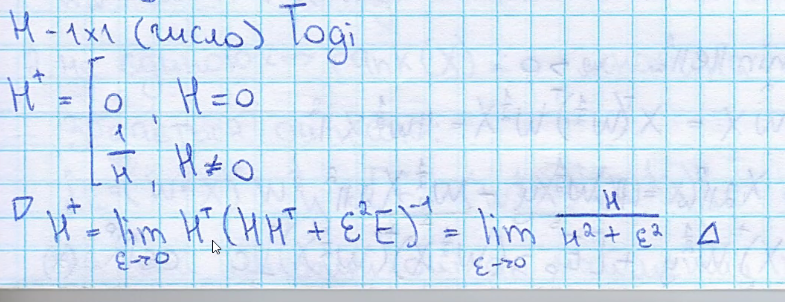 H - 1×1 (число) Тоді
H⁺ = [ 0 , H = 0
1/H , H ≠ 0
▷ H⁺ = lim_{ε→0} Hᵀ(HHᵀ + ε²E)⁻¹ = lim_{ε→0} H/(H² + ε²) ◁